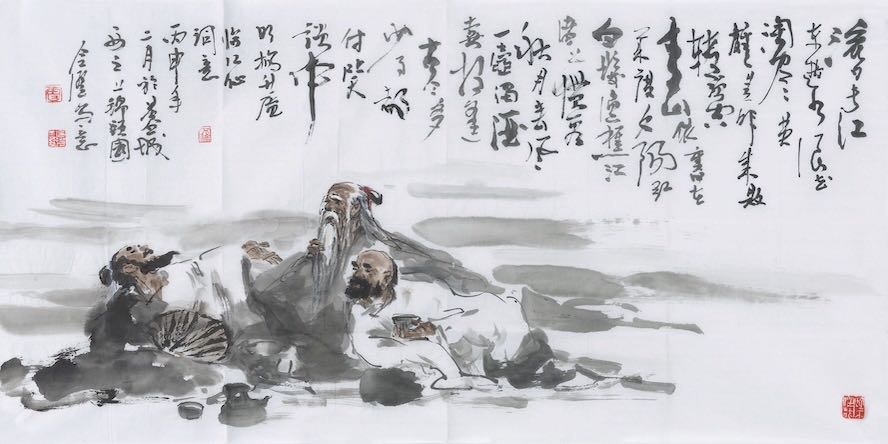 滚々长江
东逝水浪花
淘尽英
雄是非成败
转头空
青山依旧在
几度夕阳红
白发渔樵江
渚上惯看
秋月春风
一壶浊酒
喜相逢
古今多
少事都
付笑
谈中
明杨升庵
临江仙
词意
丙申年
二月於蓉城
写意